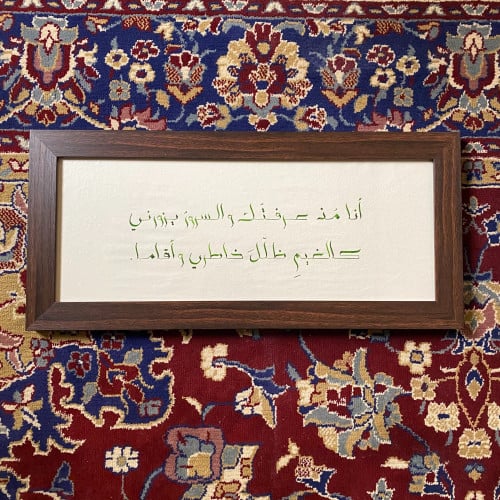 أنا مُنذ عرفتُك والسرورُ يزورني
كالغيمِ ظلّلَ خاطري وأقاما.